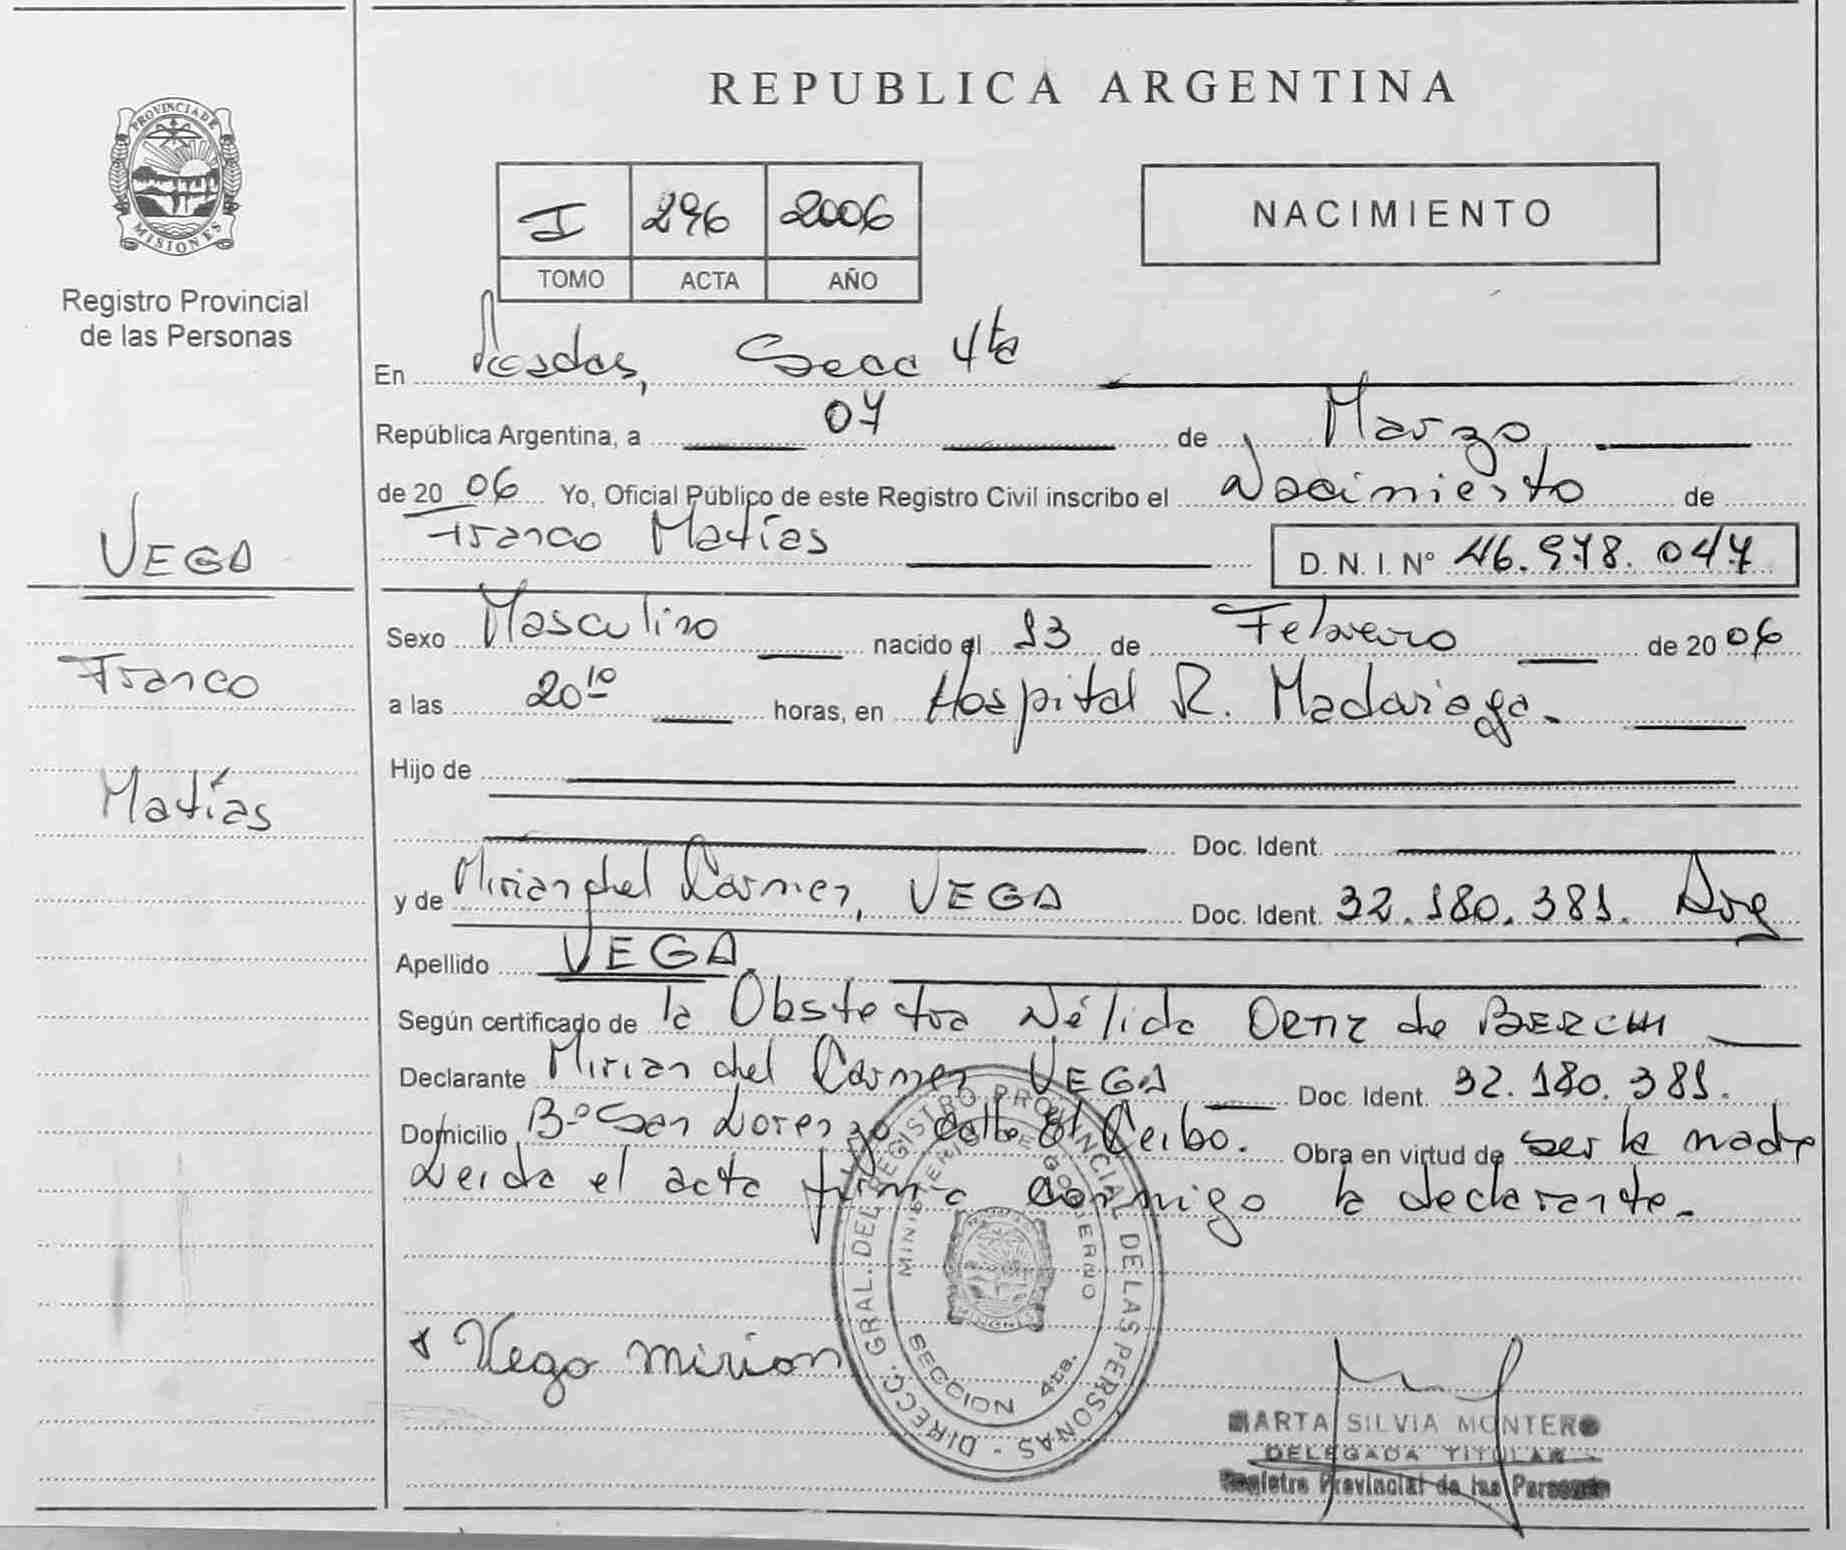 REPUBLICA ARGENTINA
PROVINCIA DE MISIONES
Registro Provincial
de las Personas
I 296 2006
TOMO ACTA AÑO
NACIMIENTO
En Posadas, Secc 4ta
República Argentina, a 07 de Marzo
de 2006 Yo, Oficial Público de este Registro Civil inscribo el Nacimiento de
Franco Matías D. N. I. N° 46.978.047
VEGA
Franco
Matías
Sexo Masculino nacido el 13 de Febrero de 2006
a las 20 10 horas, en Hospital R. Madariaga.
Hijo de
Doc. Ident.
y de Mirian del Carmen, VEGA Doc. Ident. 32.180.381. Arg
Apellido VEGA
Según certificado de la Obstetra Nélida ORTIZ de BERCHI
Declarante Mirian del Carmen VEGA Doc. Ident. 32.180.381.
Domicilio B° San Lorenzo calle El Ceibo. Obra en virtud de ser la madre
Leida el acta firma conmigo la declarante.
DIRECC. GRAL. DEL REGISTRO PROVINCIAL DE LAS PERSONAS
MINISTERIO DE GOBIERNO
SECCION 4ta.
Vega Mirian
MARTA SILVIA MONTERO
DELEGADA TITULAR
Registro Provincial de las Personas